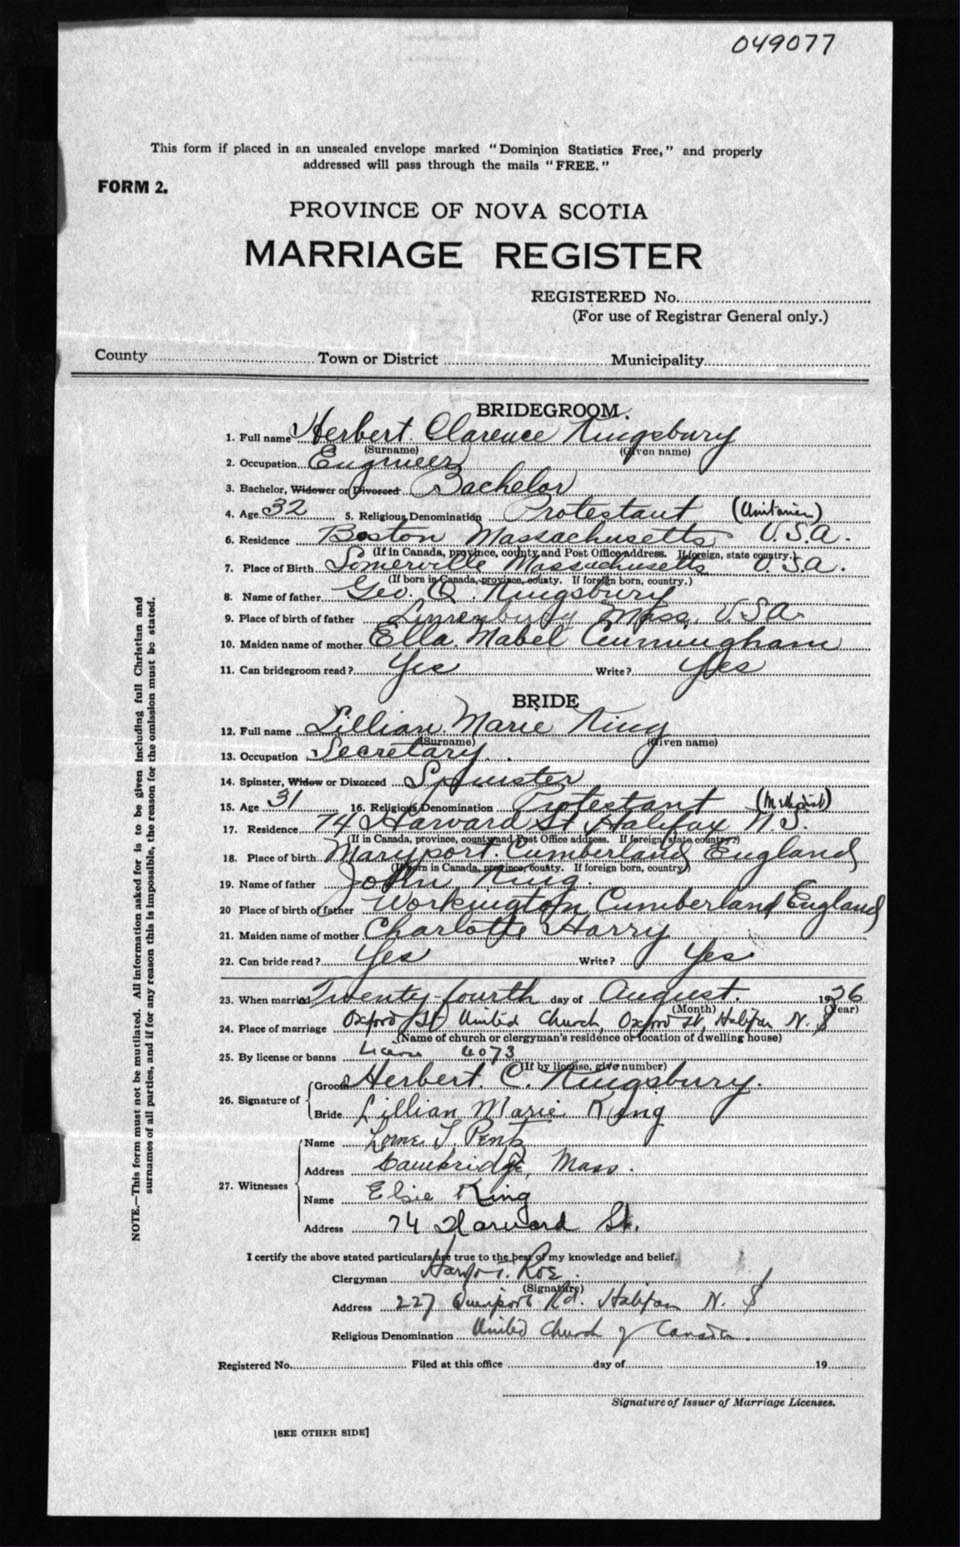 049077
This form if placed in an unsealed envelope marked "Dominion Statistics Free," and properly
addressed will pass through the mails "FREE."
FORM 2.
PROVINCE OF NOVA SCOTIA
MARRIAGE REGISTER
REGISTERED No.
(For use of Registrar General only.)
County Town or District Municipality
BRIDEGROOM.
1. Full name Herbert Clarence Kingsbury
(Surname) (Given name)
2. Occupation Engineer
3. Bachelor, Widower or Divorced Bachelor
4. Age 32 5. Religious Denomination Protestant (Unitarian)
6. Residence Boston Massachusetts U.S.A.
(If in Canada, province, county and Post Office address. If foreign, state country.)
7. Place of Birth Somerville Massachusetts U.S.A.
(If born in Canada, province, county. If foreign born, country.)
8. Name of father Geo. Q. Kingsbury
9. Place of birth of father Mass. U.S.A.
10. Maiden name of mother Ella Mabel Cunningham
11. Can bridegroom read? Yes Write? Yes
BRIDE
12. Full name Lillian Marie King
(Surname) (Given name)
13. Occupation Secretary
14. Spinster, Widow or Divorced Spinster
15. Age 31 16. Religious Denomination Protestant (Methodist)
17. Residence 74 Harvard St. Halifax N.S.
(If in Canada, province, county and Post Office address. If foreign, state country.)
18. Place of birth Maryport. Cumberland England
(If born in Canada, province, county. If foreign born, country)
19. Name of father John King.
20 Place of birth of father Workington Cumberland England
21. Maiden name of mother Charlotte Harry
22. Can bride read? Yes Write? Yes
23. When married Twenty-fourth day of August. 1936
(Month) (Year)
24. Place of marriage Oxford St United Church, Oxford St, Halifax N. S
(Name of church or clergyman's residence or location of dwelling house)
25. By license or banns License 6073
(If by license, give number)
26. Signature of Groom Herbert C. Kingsbury.
Bride Lillian Marie King
27. Witnesses
Name Lorne Pentz
Address Cambridge, Mass.
Name Elsie King
Address 74 Harvard St.
I certify the above stated particulars are true to the best of my knowledge and belief.
Clergyman Roe
(Signature)
Address 227 Rd. Halifax N. S
Religious Denomination United Church of Canada.
Registered No. Filed at this office day of 19
Signature of Issuer of Marriage Licenses.
[SEE OTHER SIDE]
NOTE.—This form must not be mutilated. All information asked for is to be given including full Christian and
surnames of all parties, and if for any reason this is impossible, the reason for the omission must be stated.